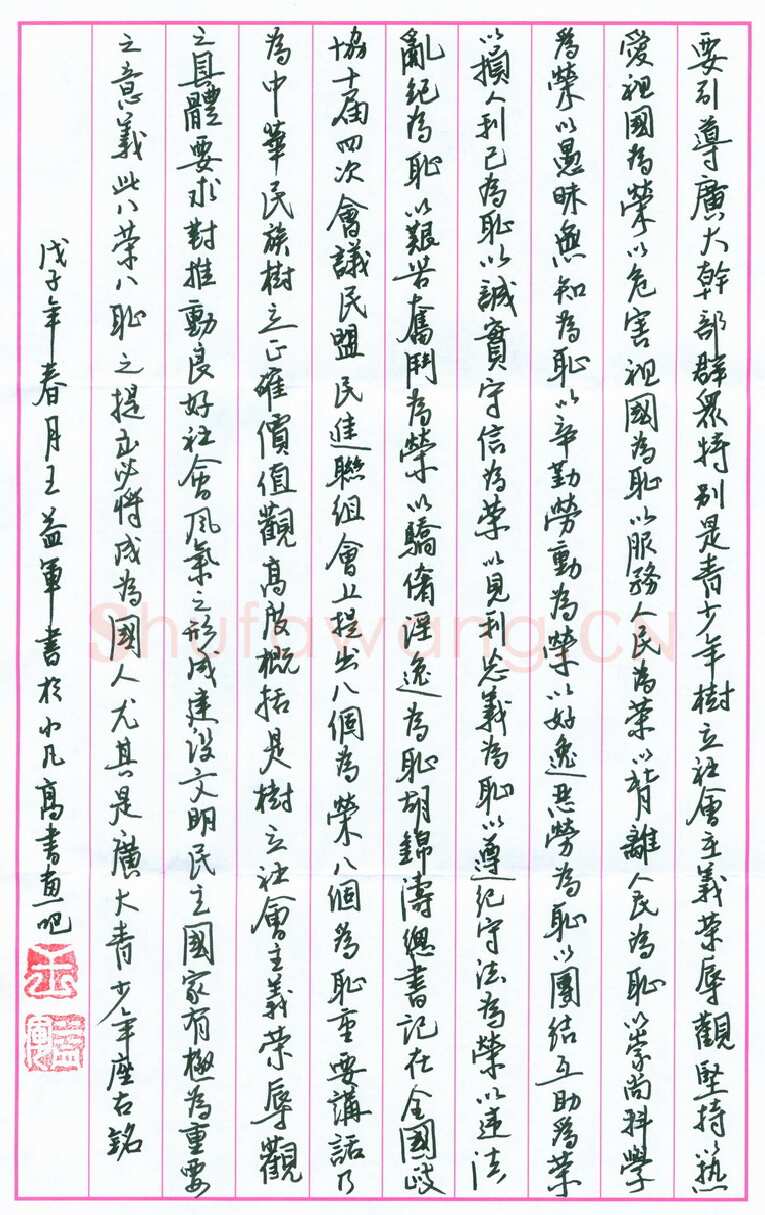 要引導廣大幹部群衆特别是青少年樹立社會主義荣辱觀堅持以熱
愛祖國為榮以危害祖國為恥以服務人民為荣以背離人民為恥以崇尚科學
為榮以愚昧無知為恥以辛勤勞動為榮以好逸惡勞為恥以團结互助為荣
以損人利己為恥以誠實守信為荣以見利忘義為恥以遵纪守法為榮以違法
亂纪為恥以艱苦奮鬥為榮以驕奢淫逸為恥胡錦濤總書記在全國政
協十届四次會議民盟民進聯组會上提出八個為榮八個為恥重要講話乃
為中華民族樹立正確價值觀高度概括是樹立社會主義荣辱觀
之具體要求對推動良好社會風氣之形成建设文明民主國家有極為重要
之意義此八荣八恥之提出必将成為國人尤其是廣大青少年座右銘
戊子年春月王益軍書於小凡高書畫吧
王
益軍
Shufawang.CN